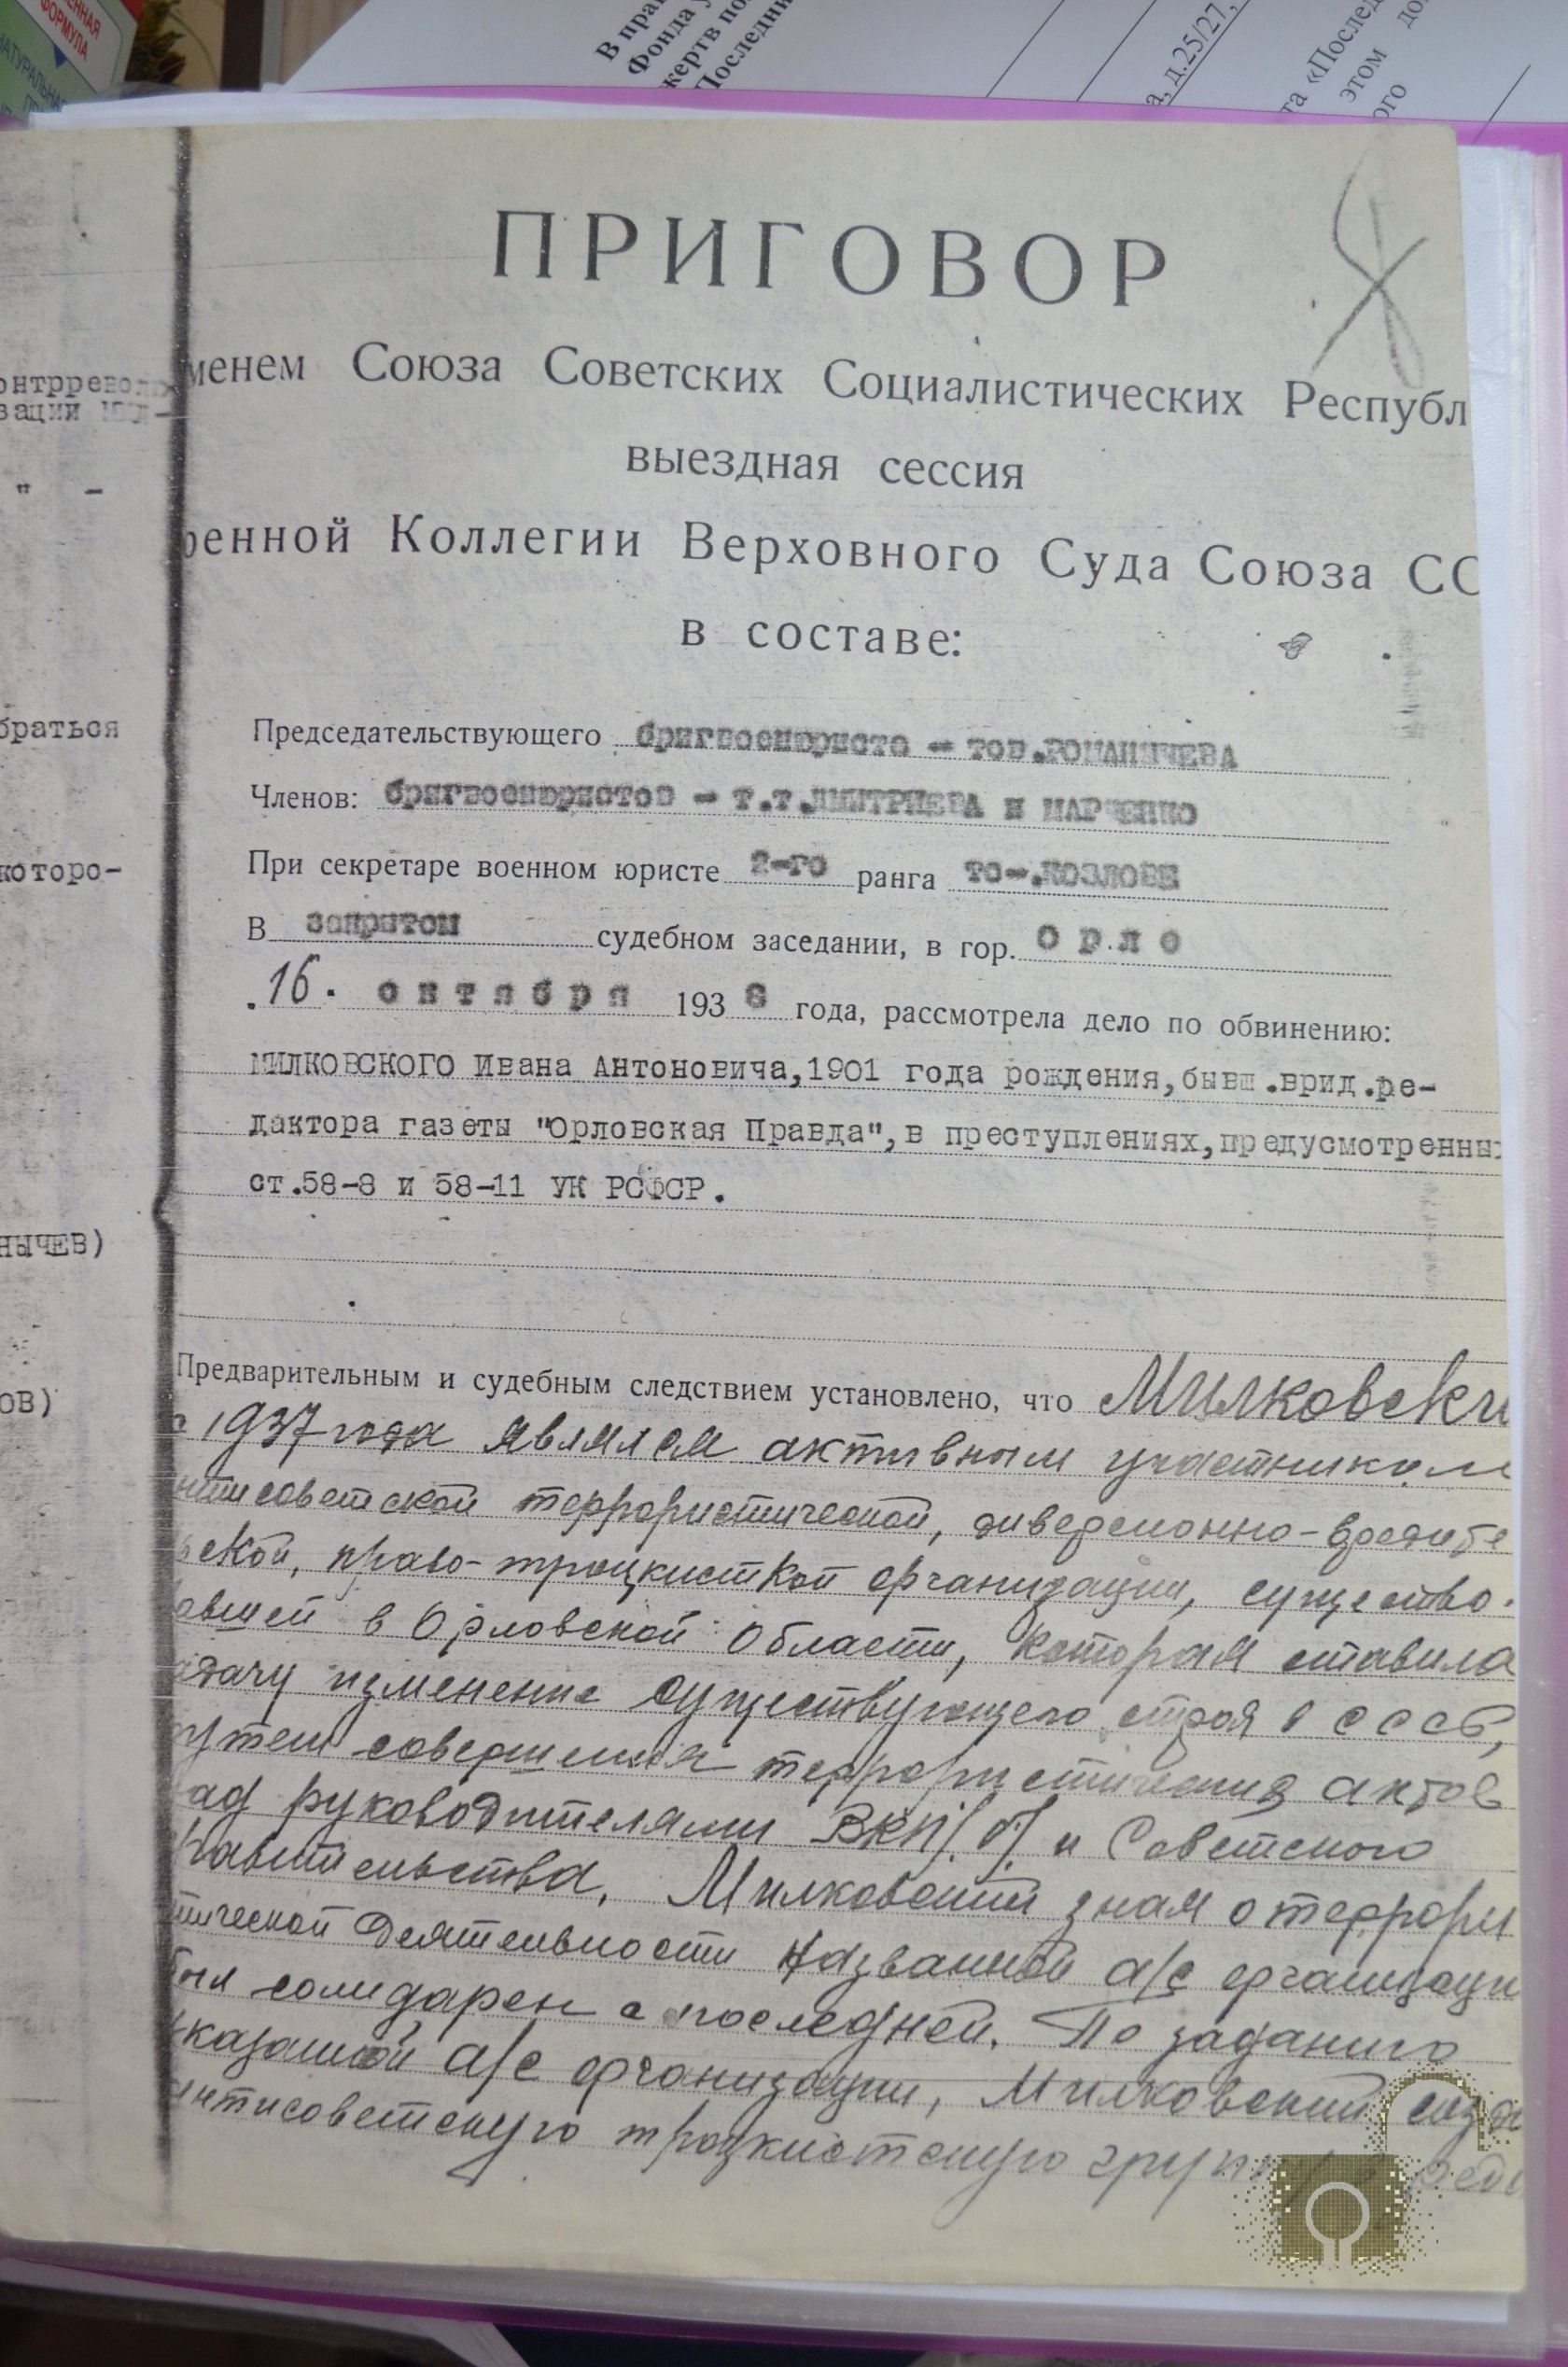 ЕННАЯ
ФОРМУЛА
НАТУРАЛЬНАЯ
В прав
Фонда у
жертв по
Последни
а, д.25/27,
та «Послед
этом до
ого
онтрревол
зации
" -
браться
которо-
НЫЧЕВ)
ОВ)
ПРИГОВОР
менем Союза Советских Социалистических Республ
выездная сессия
оенной Коллегии Верховного Суда Союза СС
в составе:
Председательствующего бригвоенюриста - тов.РОМАНЫЧЕВА
Членов: бригвоенюристов - т.т.ДМИТРИЕВА и МАРЧЕНКО
При секретаре военном юристе 2-го ранга то-.КОЗЛОВЕ
В закрытом судебном заседании, в гор. О р л е
16. о к т я б р я 1938 года, рассмотрела дело по обвинению:
МИЛКОВСКОГО Ивана Антоновича,1901 года рождения,бывш.врид.ре-
дактора газеты "Орловская Правда",в преступлениях,предусмотренны
ст.58-8 и 58-11 УК РСФСР.
Предварительным и судебным следствием установлено, что Милковски
с 1937 года являлся активным участником
нтисоветской террористической, диверсионно-вредите
ьской, право-троцкисткой организации, существо-
авшей в Орловской области, которая ставила
адачу изменение существующего строя в СССР,
утем совершения террористических актов
ад руководителями ВКП/б/ и Советского
равительства. Милковский знал о террори
тической деятельности названной а/с организаци
был солидарен с последней. По заданию
казанной а/с организации, Милковский созда
антисоветскую троцкистскую групп реда